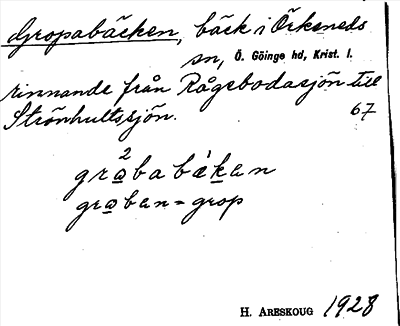 Gropabäcken, bäck i Örkeneds
sn, Ö. Göinge hd, Krist. l.
rinnande från Rågebodasjön till
Strönhultssjön. 67
2
grababækan
graban = grop
H. ARESKOUG 1928